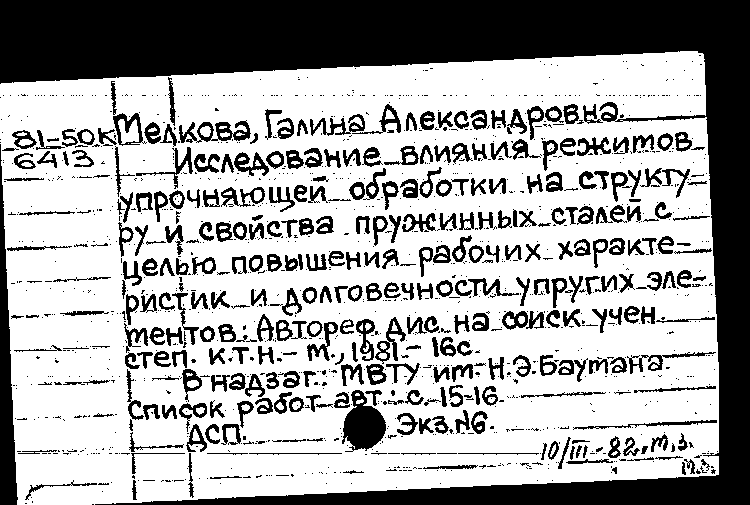 81-50К Мелкова, Галина Александровна.
6413 Исследование влияния режимов
упрочняющей обработки на структу-
ру и свойства пружинных сталей с
целью повышения рабочих характе-
ристик и долговечности упругих эле-
ментов: Автореф. дис. на соиск. учен.
степ. к.т.н. – М., 1981. – 16с.
В надзаг.: МВТУ им. Н.Э.Баумана.
Список работ авт.: с. 15-16.
ДСП. Экз.№6.
10/III-82.